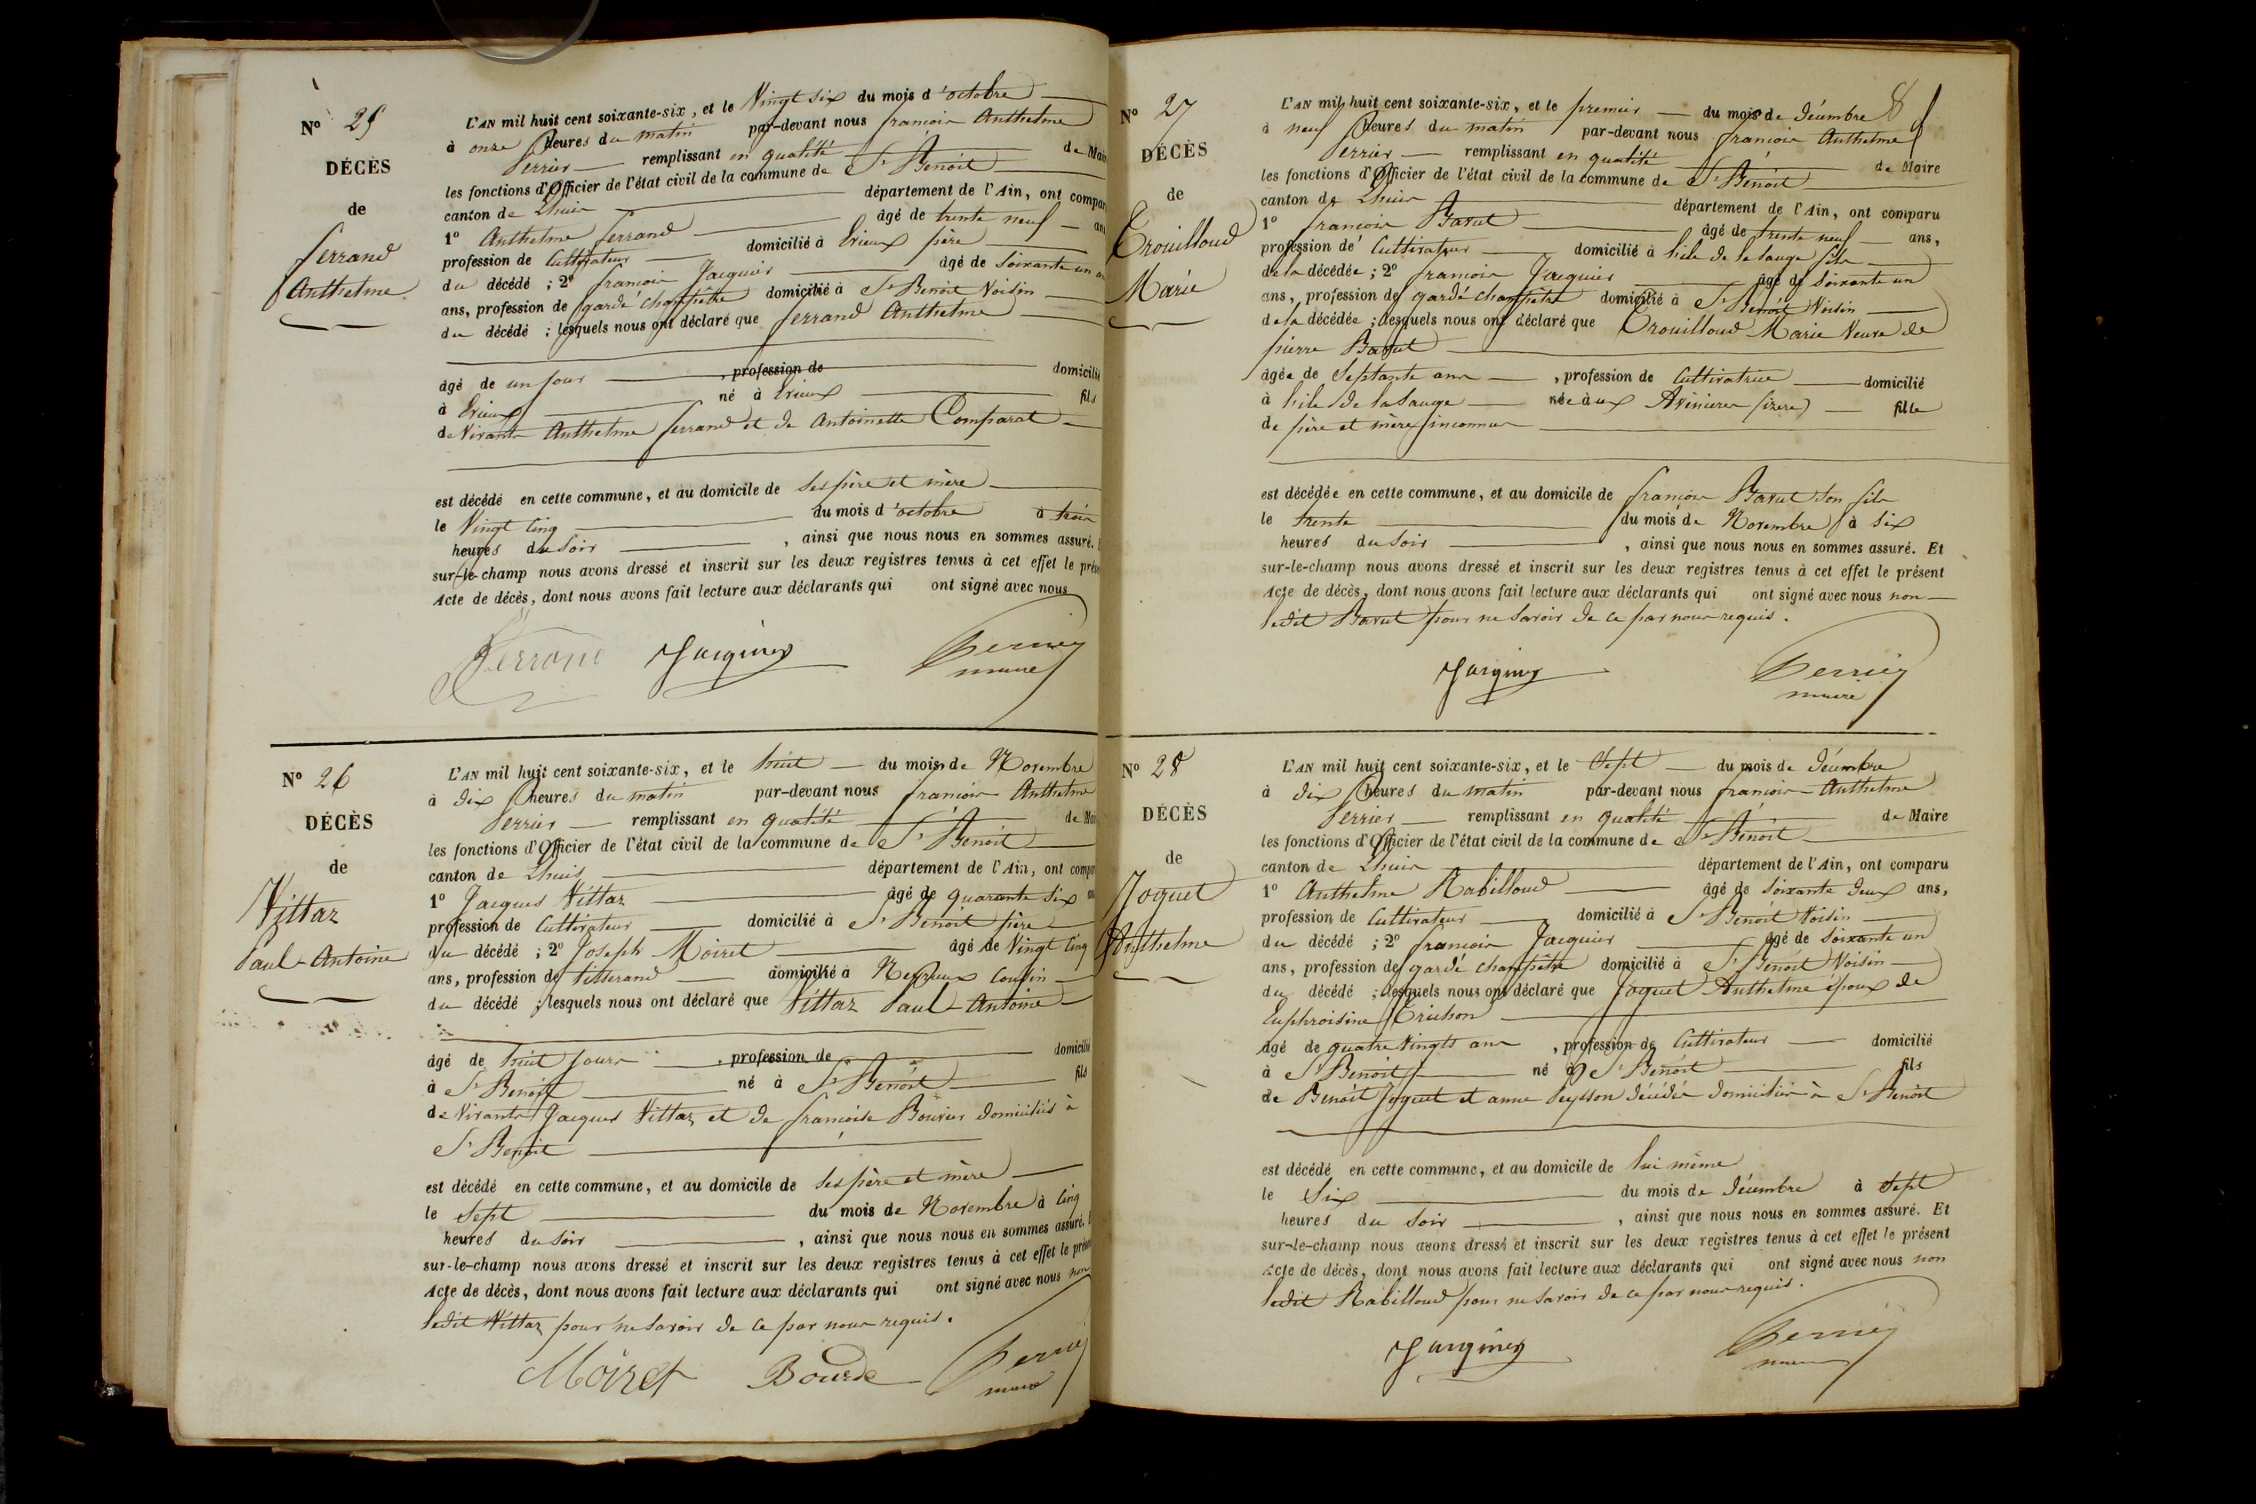 Nº 25
DÉCÈS
de
ferrand
Anthelme
L'AN mil huit cent soixante-six, et le Vingt six du mois d'octobre
à onze heures du matin par-devant nous françois Anthelme
Perrier remplissant en qualité de Mair
les fonctions d'Officier de l'état civil de la commune de St Benoît
canton de Lhuis département de l'Ain, ont compar
1º Anthelme ferrand âgé de trente neuf ans
profession de Cultivateur domicilié à Erieux père
du décédé ; 2º françois Jacquier âgé de soixante un
ans, profession de garde champêtre domicilié à St Benoît Voisin
du décédé ; lesquels nous ont déclaré que ferrand Anthelme
âgé de un jour , profession de domicilié
à Erieux né à Erieux fils
de Vivants Anthelme ferrand et de Antoinette Comparat
est décédé en cette commune, et au domicile de ses père et mère
le Vingt Cinq du mois d'octobre à trois
heures du soir , ainsi que nous nous en sommes assuré.
sur-le-champ nous avons dressé et inscrit sur les deux registres tenus à cet effet le prése
Acte de décès, dont nous avons fait lecture aux déclarants qui ont signé avec nous
ferrand Jacquier Perrier
maire
Nº 26
DÉCÈS
de
Vittaz
Paul-Antoine
L'AN mil huit cent soixante-six, et le huit du mois de Novembre
à dix heures du matin par-devant nous françois Anthelme
Perrier remplissant en qualité de Mai
les fonctions d'Officier de l'état civil de la commune de St Benoît
canton de Lhuis département de l'Ain, ont compa
1º Jacques Vittaz âgé de quarante six an
profession de Cultivateur domicilié à St Benoît père
du décédé ; 2º Joseph Moiret âgé de Vingt Cinq
ans, profession de tisserand domicilié à Neyrieux Cousin
du décédé ; lesquels nous ont déclaré que Vittaz Paul-Antoine
âgé de huit jours , profession de domicilié
à St Benoît né à St Benoît fils
de Vivants Jacques Vittaz et de françoise Bouvier domiciliés à
St Benoît
est décédé en cette commune, et au domicile de ses père et mère
le sept du mois de Novembre à Cinq
heures du soir , ainsi que nous nous en sommes assuré.
sur-le-champ nous avons dressé et inscrit sur les deux registres tenus à cet effet le présen
Acte de décès, dont nous avons fait lecture aux déclarants qui ont signé avec nous non
ledit Vittaz pour ne savoir de ce par nous requis.
Moiret Bourde Perrier
maire
8
Nº 27
DÉCÈS
de
Trouilloud
Marie
L'AN mil huit cent soixante-six, et le premier du mois de décembre
à neuf heures du matin par-devant nous françois Anthelme
Perrier remplissant en qualité de Maire
les fonctions d'Officier de l'état civil de la commune de St Benoît
canton de Lhuis département de l'Ain, ont comparu
1º françois Barut âgé de trente neuf ans,
profession de Cultivateur domicilié à hile de la sauge fils
de la décédée ; 2º françois Jacquier âgé de soixante un
ans, profession de garde champêtre domicilié à St Benoît Voisin
de la décédée ; lesquels nous ont déclaré que Trouilloud Marie Veuve de
pierre Barut
âgée de Septante ans , profession de Cultivatrice domicilié
à hile de la sauge née à ux Avinieres (isere) fille
de père et mère inconnus
est décédée en cette commune, et au domicile de françois Barut son fils
le trente du mois de Novembre à six
heures du soir , ainsi que nous nous en sommes assuré. Et
sur-le-champ nous avons dressé et inscrit sur les deux registres tenus à cet effet le présent
Acte de décès, dont nous avons fait lecture aux déclarants qui ont signé avec nous non
ledit Barut pour ne savoir de ce par nous requis.
Jacquier Perrier
maire
Nº 28
DÉCÈS
de
Joguet
Anthelme
L'AN mil huit cent soixante-six, et le Sept du mois de décembre
à dix heures du matin par-devant nous françois Anthelme
Perrier remplissant en qualité de Maire
les fonctions d'Officier de l'état civil de la commune de St Benoît
canton de Lhuis département de l'Ain, ont comparu
1º Anthelme Rabilloud âgé de soixante deux ans,
profession de Cultivateur domicilié à St Benoît Voisin
du décédé ; 2º françois Jacquier âgé de soixante un
ans, profession de garde champêtre domicilié à St Benoît Voisin
du décédé ; lesquels nous ont déclaré que Joguet Anthelme époux de
Euphroisine Truchon
âgé de quatre Vingts ans , profession de Cultivateur domicilié
à St Benoît né à St Benoît fils
de Benoît Joguet et anne Peysson décédés domiciliés à St Benoît
est décédé en cette commune, et au domicile de lui même
le Six du mois de décembre à Sept
heures du soir , ainsi que nous nous en sommes assuré. Et
sur-le-champ nous avons dressé et inscrit sur les deux registres tenus à cet effet le présent
Acte de décès, dont nous avons fait lecture aux déclarants qui ont signé avec nous non
ledit Rabilloud pour ne savoir de ce par nous requis.
Jacquier Perrier
maire